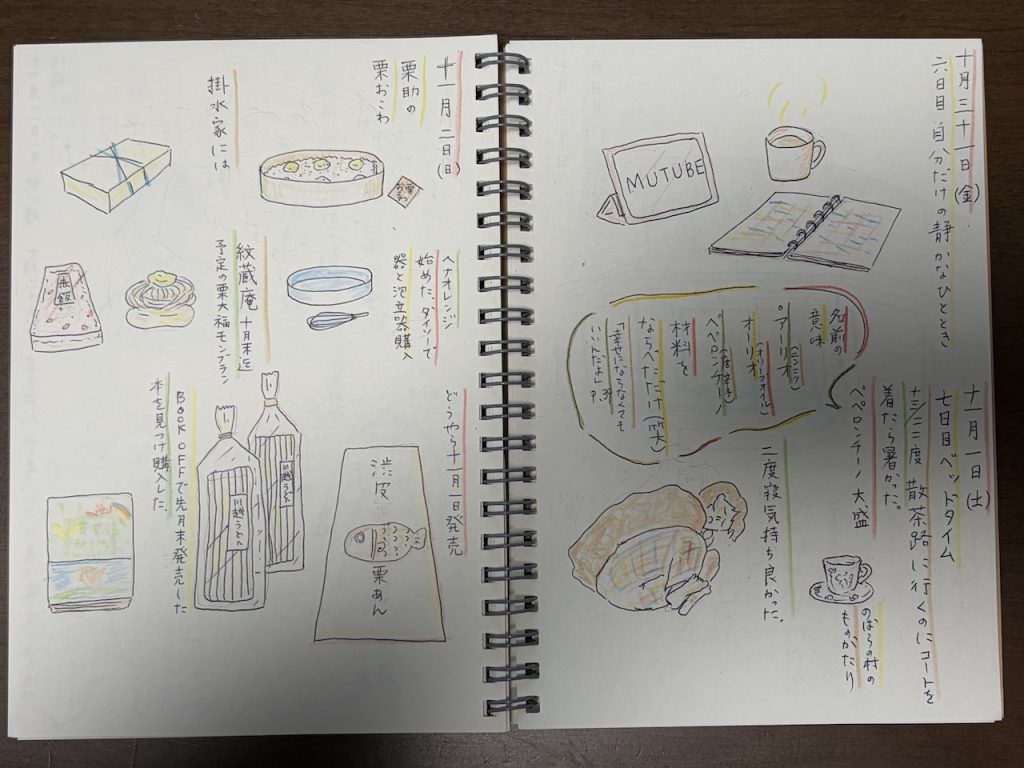 十月三十一日(金)
六日目 自分だけの静かなひととき
MUTUBE
十一月一日(土)
七日目 ベッドタイム
十三/二二度 散茶路に行くのにコートを
着たら暑かった。
ペペロンチーノ大盛
名前の
意味
・アーリオ(ニンニク)
オーリオ(オリーブオイル)
ペペロンチーノ(唐辛子)
材料を
ならべただけ(笑)
「幸せにならなくても
いいんだよ」
のばらの村の
ものがたり
二度寝気持ち良かった。
十一月二日(日)
栗助の
栗おこわ
栗おこわ
掛水家には
ヘナオレンジ
始めた。ダイソーで
器と泡立器購入
紋蔵庵 十月末迄
予定の栗大福モンブラン
どうやら十一月一日発売
渋皮
栗あん
川越うどん
川越うどん
BOOKOFFで先月末発売した
本を見つけ購入した。